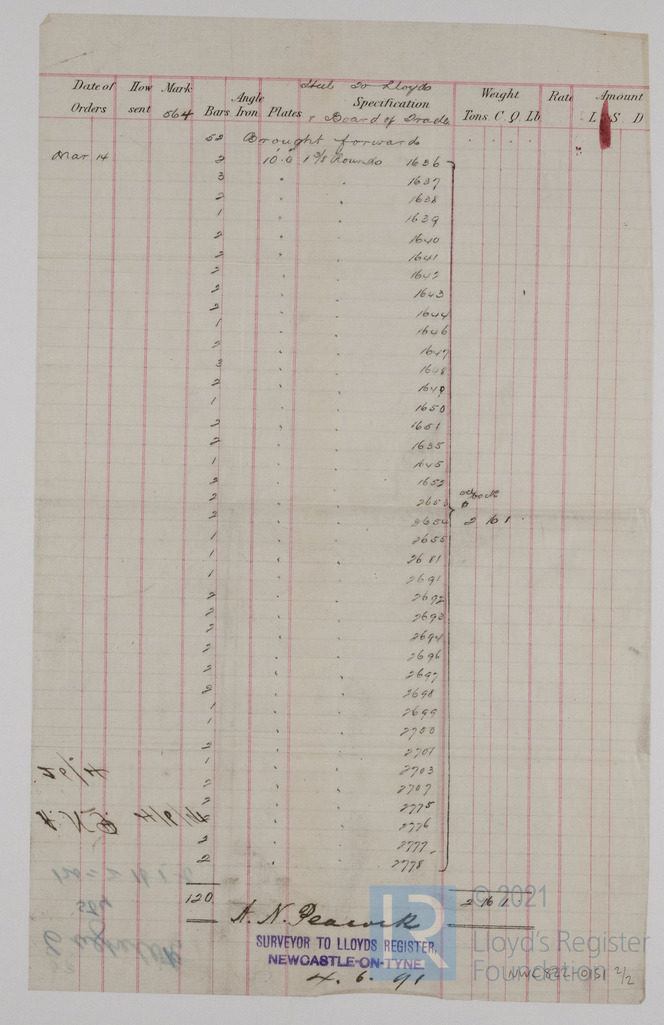 Steel to Lloyds
Date of How Mark Angle Specification Weight Rate Amount
Orders sent 564 Bars Iron Plates & Board of Trade Tons C Q Lb L S D
52 Brought forwards
Mar 14 2 10.0 1 5/8 Rounds 1636
3 " " 1637
2 " " 1638
1 " " 1639
2 " " 1640
2 " " 1641
2 " " 1642
2 " " 1643
2 " " 1644
1 " " 1646
2 " " 1647
3 " " 1648
2 " " 1649
1 " " 1650
2 " " 1651
2 " " 1635
1 " " 1645
2 " " 1652
2 " " 2653
2 " " 2654 2 16 1
1 " " 2655
1 " " 2681
1 " " 2691
2 " " 2692
2 " " 2693
2 " " 2694
2 " " 2696
2 " " 2697
2 " " 2698
1 " " 2699
2700
2 " " 2701
1 " " 2703
2 " " 2707
2 " " 2775
2 " " 2776
2 " " 2777
2 " " 2778
120 2 16 1
A. N. Peacock
SURVEYOR TO LLOYDS REGISTER,
NEWCASTLE-ON-TYNE
4. 6. 91
LR
© 2021
Lloyd's Register
Foundation
NWC822-0151 2/2